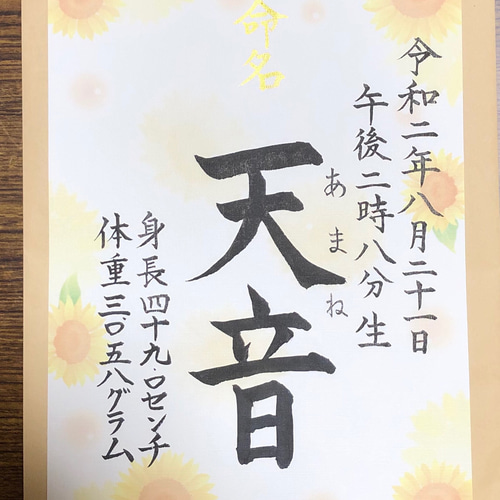 命名
令和二年八月二十一日
午後二時八分生
あまね
天音
身長四十九.〇センチ
体重三〇五八グラム